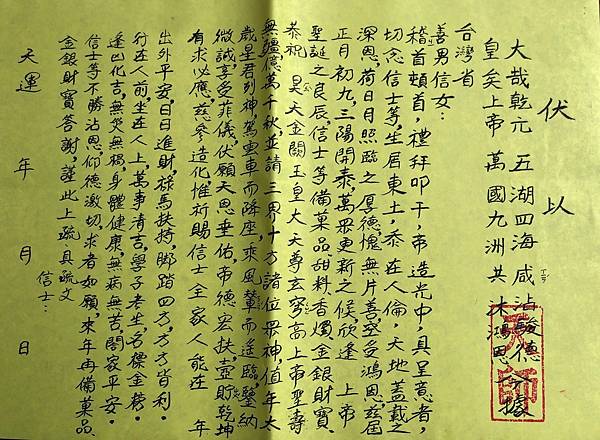 伏以
大哉乾元 五湖四海咸沾駿德
皇矣上帝 萬國九洲共沐鴻恩 今據
台灣省
善男信女：
稽首頓首，禮拜叩干，帝造光中，具呈意者，
切念信士等，生居東土，忝在人倫，大地蓋載之
深恩，荷日月照臨之厚德，愧無片善，空受鴻恩，茲屆
正月初九，三陽開泰，萬眾更新之候，欣逢 上帝
聖誕之良辰，信士等備菓品，甜料香燭金銀財寶，
恭祝 昊天金闕玉皇大天尊玄穹高上帝聖壽
無疆，億萬千秋，並請三界十方諸位眾神，值年太
歲星君列神，駕雲車而降座，乘風輦而遙臨，鑒納
微誠，享受菲儀，伏願天恩垂佑，帝德宏扶，靈貯乾坤
有求必應，慈參造化惟祈賜信士全家人能在 年
出外平安，日日進財，祿馬扶持，腳踏四方，方方皆利，
行在人前，坐在人上，萬事清吉，學子考生，名標金榜，
逢凶化吉，無災無禍，身體健康，無病無苦，闔家平安，
信士等不勝沾恩，仰德激切，求者如願，來年再備菓品
金銀財寶答謝，謹此上疏，具疏文
信士：
天運 年 月 日
天師